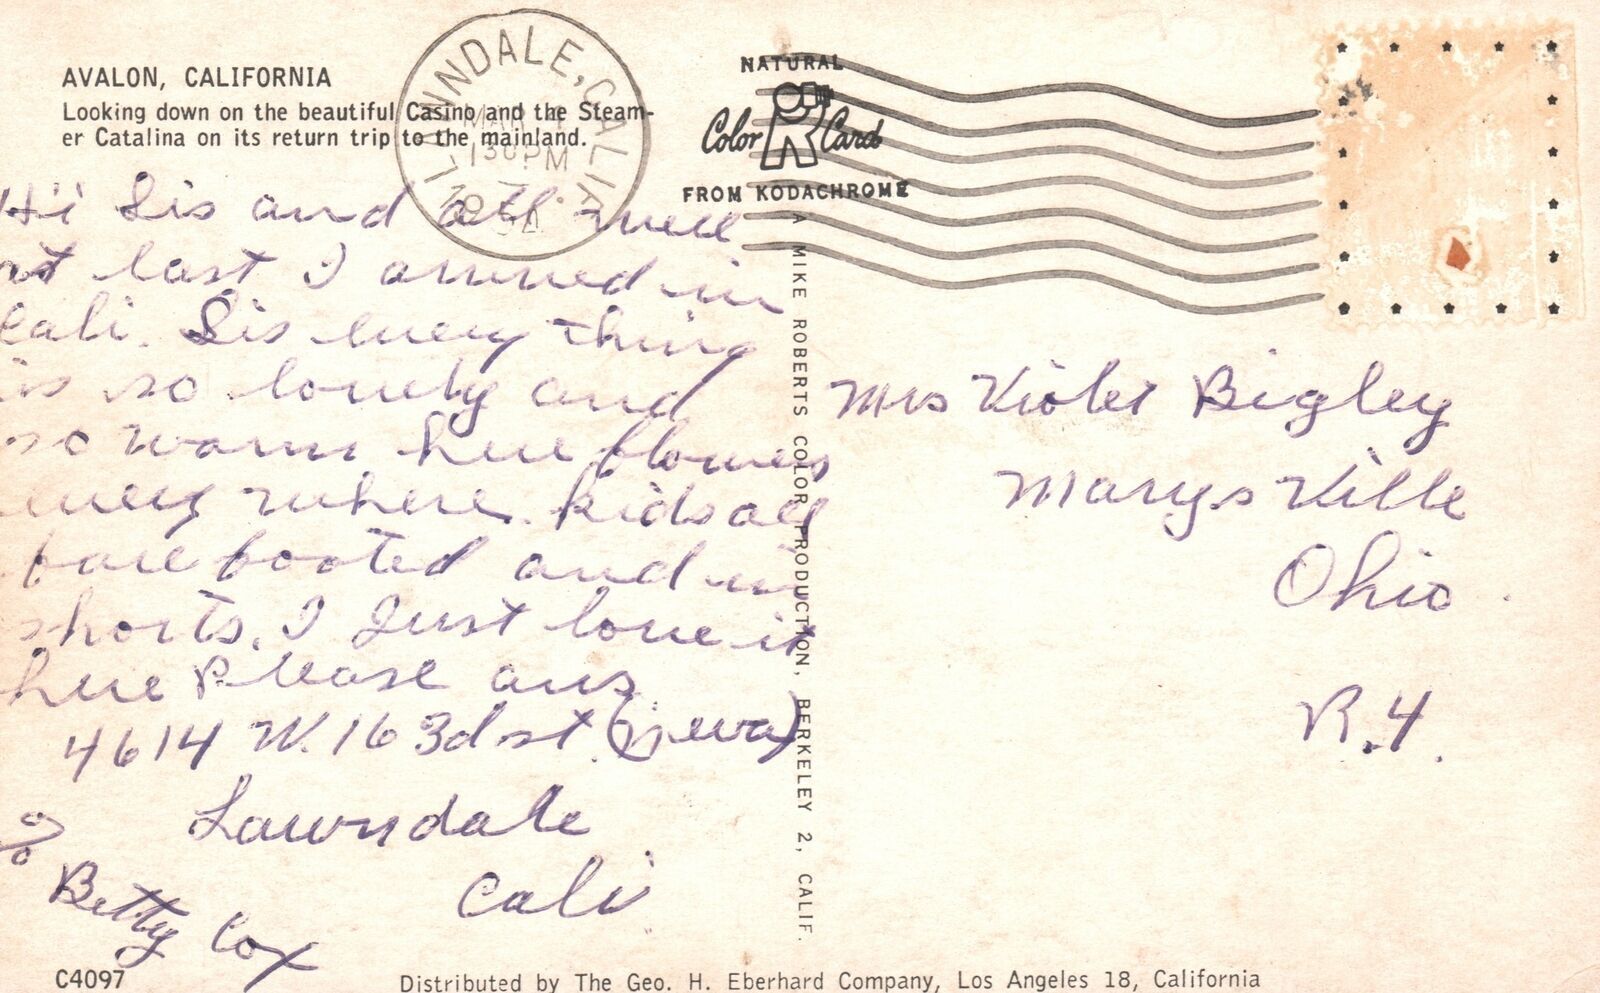 AVALON, CALIFORNIA
Looking down on the beautiful Casino and the Steam-
er Catalina on its return trip to the mainland.
LAWNDALE, CALIF.
MAR
130 PM
NATURAL
Color Card
FROM KODACHROME
Hi Sis and all well
at last I arrived in
Cali. Sis every thing
is so lovely and
so warm here flowers
every where. kids all
bare footed and in
shorts. I Just love it
here Please ans
4614 W. 163d st.
Lawndale
Cali
%
Betty Cox
Mrs Violet Bigley
Marys Ville
Ohio
R.4.
A MIKE ROBERTS COLOR PRODUCTION, BERKELEY 2, CALIF.
C4097
Distributed by The Geo. H. Eberhard Company, Los Angeles 18, California